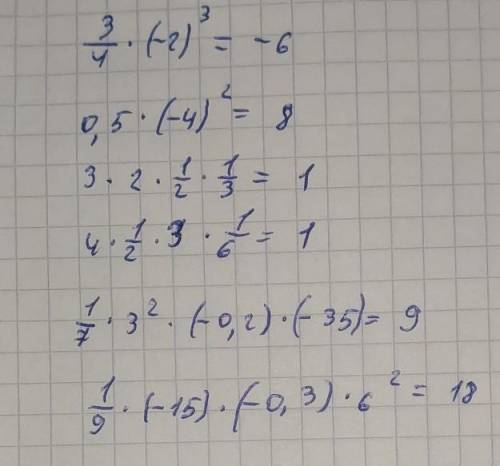 3/4 · (-2)³ = -6
0,5 · (-4)² = 8
3 · 2 · 1/2 · 1/3 = 1
4 · 1/2 · 3 · 1/6 = 1
1/7 · 3² · (-0,2) · (-35) = 9
1/9 · (-15) · (-0,3) · 6² = 18